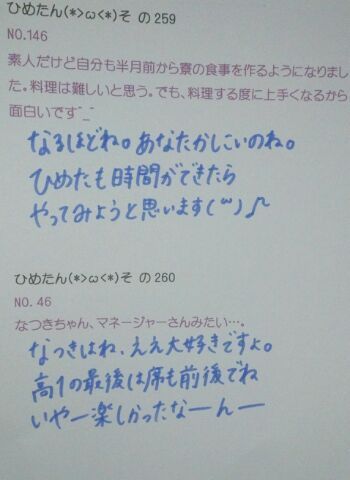 ひめたん(*>ω<*)そ の259
NO.146
素人だけど自分も半月前から寮の食事を作るようになりまし
た。料理は難しいと思う。でも、料理する度に上手くなるから
面白いです^_^
なるほどね。あなたかしこいのね。
ひめたも時間ができたら
やってみようと思います(ω)♪
ひめたん(*>ω<*)そ の260
NO.46
なつきちゃん、マネージャーさんみたい…。
なつきはね、ええ大好きですよ。
高1の最後は席も前後でね
いやー楽しかったなーんー